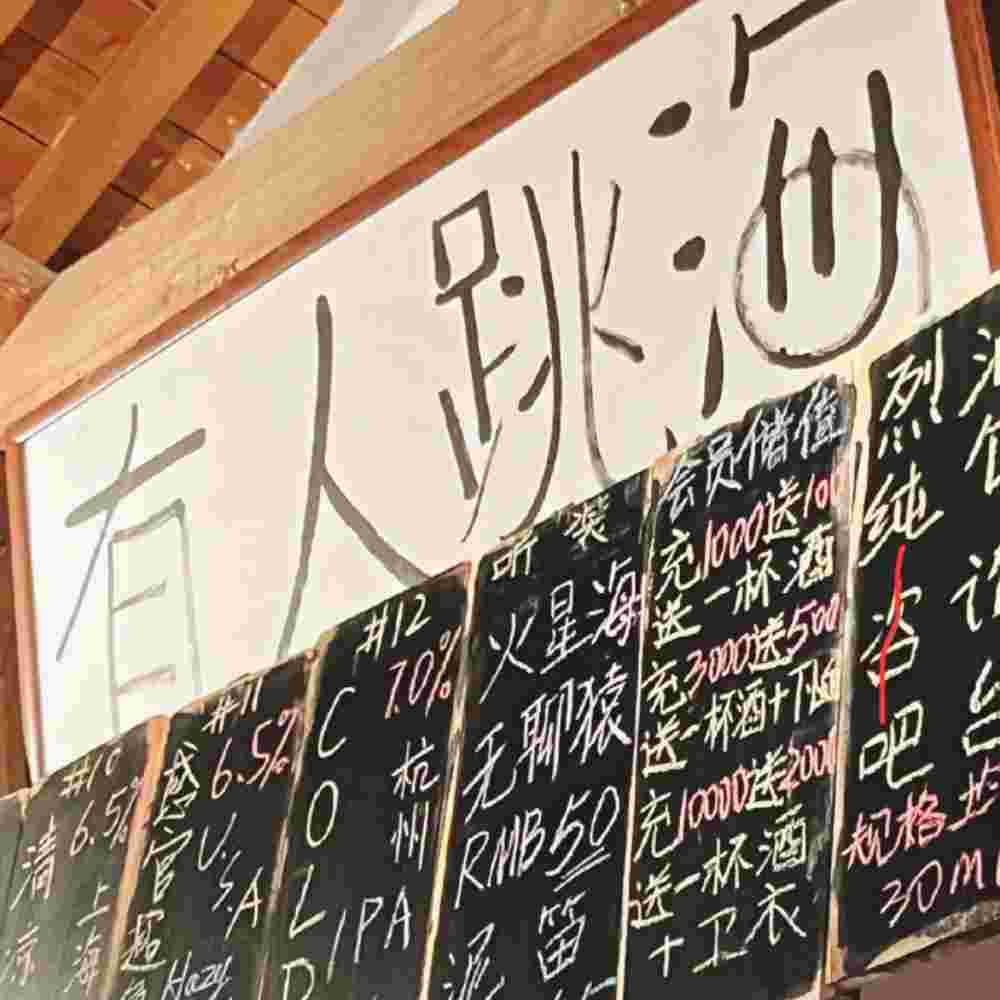 有人跳海
#10
6.5%
清
上海
#11
6.5%
感官
U.S.A
超
Hazy
#12
7.0%
COLD
杭州
IPA
听装
火星海
无聊猿
RMB50
泥
笛
会员储值
充1000送100
送一杯酒
充3000送500
送一杯酒+T恤
充10000送2000
送一杯酒
+卫衣
烈
纯
吧
规格均
30Ml